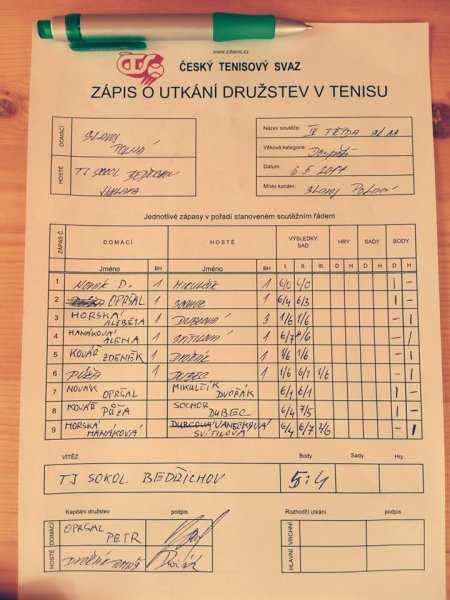 www.cztenis.cz
ČESKÝ TENISOVÝ SVAZ
ZÁPIS O UTKÁNÍ DRUŽSTEV V TENISU
DOMÁCÍ
SLAVOJ
POLNÁ
HOSTÉ
TJ SOKOL BEDŘICHOV
JIHLAVA
Název soutěže:
Věková kategorie: Dospělí
Datum: 6.5.2017
Místo konání: Slavoj Polná
Jednotlivé zápasy v pořadí stanoveném soutěžním řádem
ZÁPAS Č. DOMÁCÍ HOSTÉ VÝSLEDKY SAD HRY SADY BODY
Jméno BH Jméno BH I. II. III. D H D H D H
1 NOVÁK D. 1 MIKULČÍK 1 6/0 6/0 1 -
2 OPRŠAL 1 SOCHOR 1 6/4 6/3 1 -
3 HORSKÁ ALŽBĚTA 1 3 1/6 1/6 - 1
4 HANÁKOVÁ ALENA 1 SVITILOVÁ 1 6/7 - 1
5 KOVÁŘ ZDENĚK 1 DVOŘÁK 1 1/6 - 1
6 PŮŽA 1 DUBEC 1 1/6 6/1 1/6 - 1
7 NOVÁK OPRŠAL MIKULČÍK DVOŘÁK 6/1 6/1 1 -
8 KOVÁŘ PŮŽA SOCHOR DUBEC 6/4 7/5 1 -
9 HORSKÁ HANÁKOVÁ VANĚČKOVÁ SVITILOVÁ 6/4 6/7 2/6 - 1
VÍTĚZ Body Sady Hry
TJ SOKOL BEDŘICHOV 5:4
Kapitáni družstev podpis
DOMÁCÍ OPRŠAL PETR
HOSTÉ DVOŘÁK TOMÁŠ
Rozhodčí utkání podpis
VRCHNÍ
HLAVNÍ